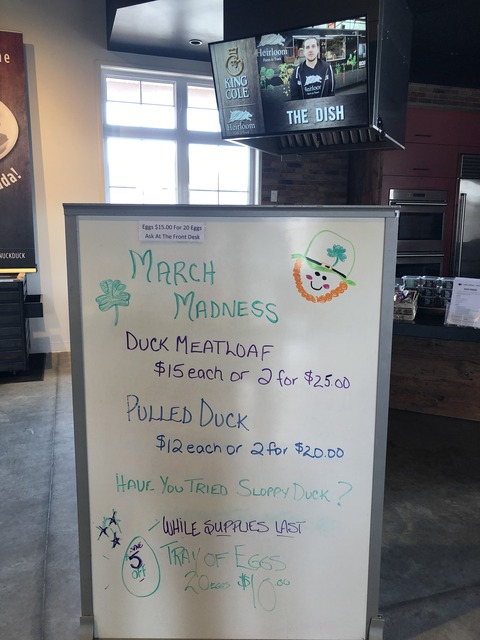 KING
COLE
Heirloom
Heirloom
Heirloom
THE DISH
Eggs $15.00 For 20 Eggs
Ask At The Front Desk
MARCH
MADNESS
DUCK MEATLOAF
$15 each or 2 for $25.00
PULLED DUCK
$12 each or 2 for $20.00
HAVE YOU TRIED SLOPPY DUCK?
WHILE SUPPLIES LAST
5
OFF
TRAY OF EGGS
20 EGGS $10.00